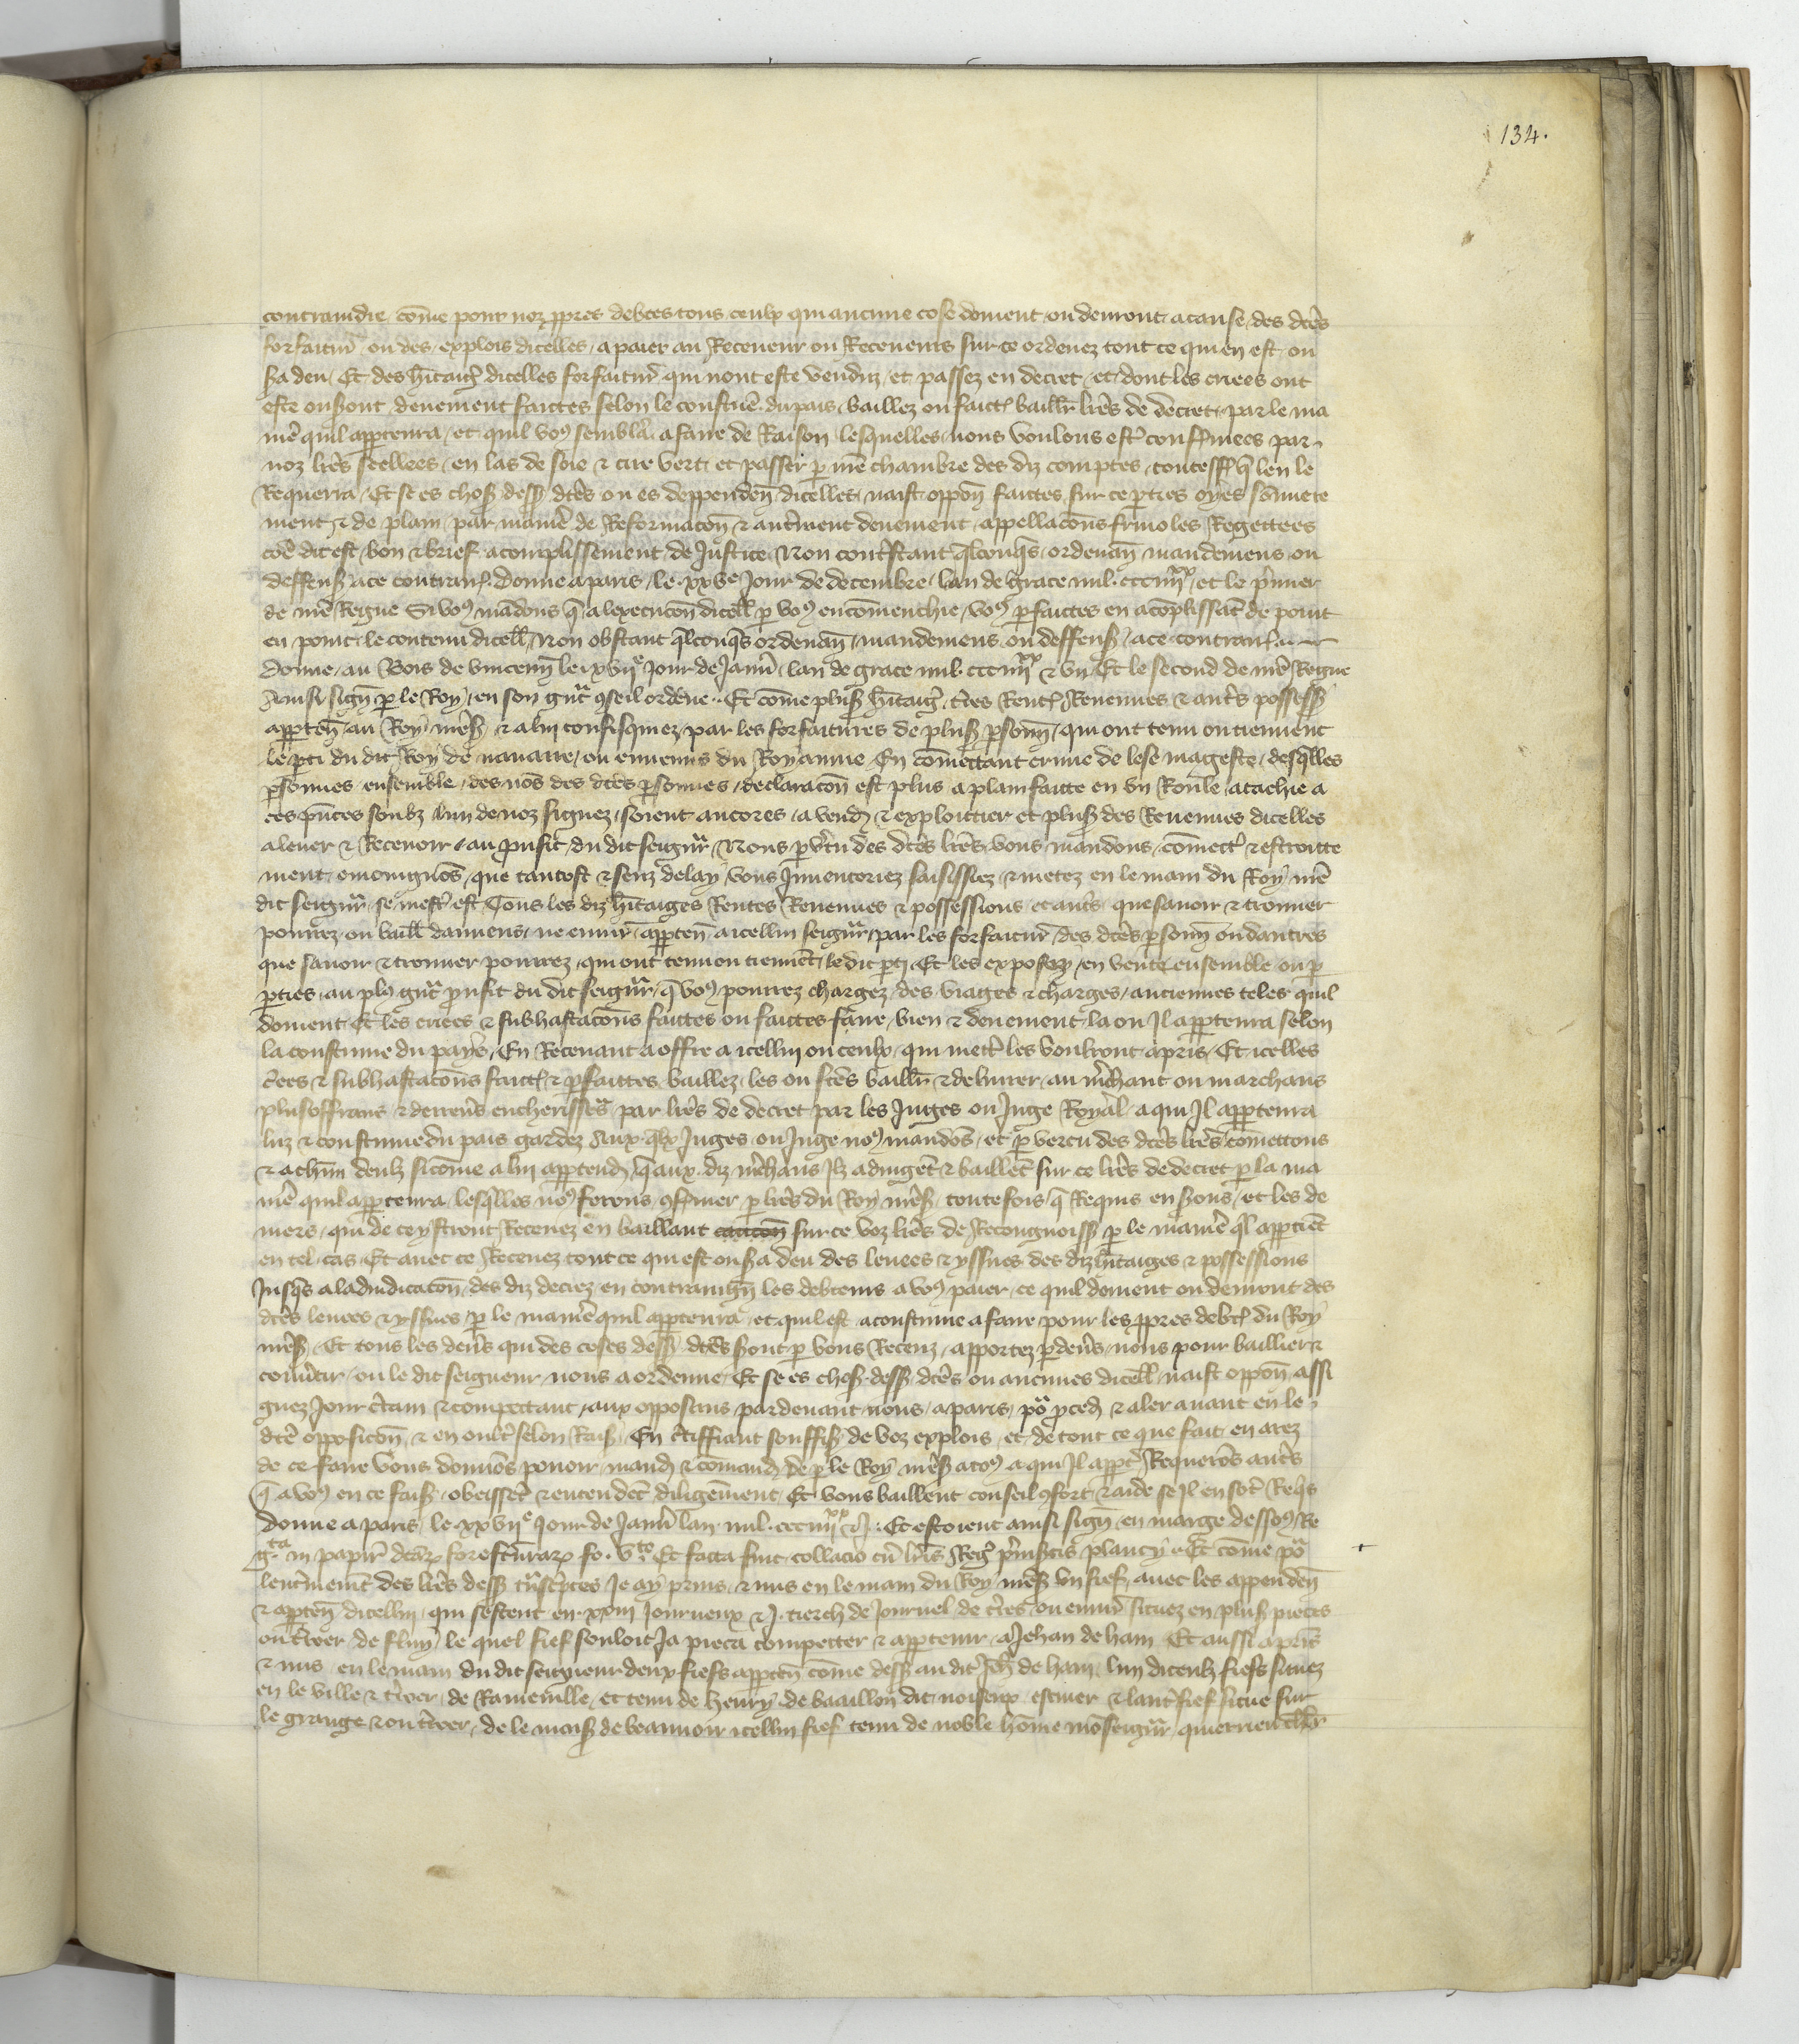 134.
contraindre come pour noz ppres debtes tous ceulx qui aucune cose doivent ou devront a cause des dctes
forfaitur ou des explois dicelles a paier au Receveur ou Receveurs sur ce ordenez tout ce qui en est ou
sa deu Et des hitaig dicelles forfaitur qui nont este venduz et passez en decret et dont les criees ont
este ou sont deuement faictes selon le coustume du pais baillez ou faictes baillr lres de decret par le ma
nie quil apptenra et quil vos semblera a faire de Raison lesquelles nous voulons estre confmees par
noz lres seellees en las de soie & cire vert et passer p nre chambre des diz comptes toutesff q len le
Requerra Et se es chos dess dctes ou es deppenden dicelles naist oppon faictes sur ce pties oyes somere
ment & de plain par maniere de Reformacon & autrement deuement appellacons frivoles Regettees
coe dit est bon & brief acomplissement de Justice Non contrestant qlconqs ordenan mandemens ou
deffens a ce contraires donne a paris le xxve Jour de decembre lan de grace mil ccc iiijxx et le pmier
de nre Regne Si vos mandons q a lexecucon dicell p vos encomenchie vos pfaictes en acoplissat de point
en point le contenu dicell Non obstant qlconqs ordenan mandemens ou deffens a ce contraires
donne au Bois de vincenn le xvije Jour de Janv lan de grace mil ccc iiijxx & vn Et le second de nre Regne
Ainsi sign p le Roy en son gnt gseil ordene Et come plus hitaig tres Rentes Revenues & autres possess
appten au Roy nres & a lui confisquiez par les forfaitures de plus psonn qui ont tenu ou tiennent
le pti du dit Roy de navarre ou ennemis du Royaume En comettant crime de lese mageste desqlles
psonnes ensemble des nos des dctes psonnes declaracon est plus a plain faicte en vn Roule atachie a
ces pntes soubz lun de noz signez soient ancores a vendre & exploictier et plus des Revenues dicelles
a lever & Recevoir au pufit du dit seigneur Nous p vtu des dctes lres vous mandons comectons & estroitte
ment enjoignons que tantost & senz delay vous Inventoriez saisissiez & metez en le main du Roy nre
dit seigneur se mest est Tous les diz hitaiges Rentes Revenues & possessions et autres que savoir & trouver
pourrez ou baill dAmiens ne envir appten a icellui seigneur par les forfaitur des dctes psonn ou dautres
que savoir & trouver pourrez qui ont tenu ou tienent le dit pti Et les exposez en vente ensemble ou p
pties au pls gnt pufit du dit seigneur q vos pourrez chargez des viages & charges anciennes teles quil
doivent Et les criees & subhastacons faictes ou faictes faire bien & deuement la ou Il apptenra selon
la coustume du pays En Recevant a offre a icellui ou ceulx qui mett les vouldront a pris Et icelles
criees & subhastacons faictes & pfaittes baillez les ou fctes baillr & delivrer au mrchant ou marchans
plus offrans & derreins encherisseurs par lres de decret par les Juges ou Juge Royal a qui Il apptenra
luz & coustume du pais gardez Aux qlx Juges ou Juge nos mandos et p vertu des dctes lres comettons
& a chun deulz sicome a lui appartendra q aux diz mrchans Ilz adjugent & baillent sur ce lres de decret p la ma
nie quil apptenra lesqlles nos ferons gfmer p lres du Roy nres toutefois q Requis en sons et les de
niers qui de ce ystront Recevez en baillant sur ce voz lres de Recongnoiss p le maniere ql apptient
en tel cas Et avec ce Recevez tout ce qui est ou sa deu des levees & yssues des diz hitaiges & possessions
Jusqs a ladjudicacon des diz decrez en contraingn les debteurs a vos paier ce quil doivent ou devront des
dctes levees & yssues p le maniere quil apptenra et quil est acoustume a faire pour les ppres debtes du Roy
nres Et tous les deniers qui des coses dess dctes sont p vous Recuz apportez p devers nous pour baillier &
convertir ou le dit seigneur nous a ordenne Et se es chos dess dctes ou aucunes dicell naist oppon assi
gnez Jour ctain & compettant aux opposans pardevant nous a paris por pced & aler avant en le
dcte opposicon & en oultre selon Rais En ctiffiant souffis de voz explois et de tout ce que fait en arez
de ce faire vous donnons povoir mand & comand de p le Roy nres a tos a qui Il appt Requerons autres
q a vos en ce fais obeissent & entendent diligemment Et vous baillent conseil gfort & aide se Il en sot Reqs
donne a paris le xxvije Jour de Janv lan mil ccc iiijxx & J Et estoient ainsi sign en marge dessos Re
gta in papir dcarz forefcurarz fo vto Et facta fuit collacio cu lris Regs pinsertis plancy Et come por
lenterinement des lres dess transcriptes Je ay prins & mis en le main du Roy nres vn fief avec les appenden
& appten dicellui qui sestent en xxiij Journeux & J tierch de Journel de tres ou envir situez en plus pieces
ou terroer de fluy le quel fief souloit Ja pieca competter & appartenir a Jehan de ham Et aussi a pris
& mis en le main du dit seigneur deux fiefs appten come dess au dit Jeh de ham lun diceulz fiefs situez
en le ville & terroer de Raineville et tenu de henry de bacaillon dit noiseux escuier & lautre fief situe sur
le grange & ou terroer de le mais de beauvoir icellui fief tenu de noble home monseigneur quierrieu chlr